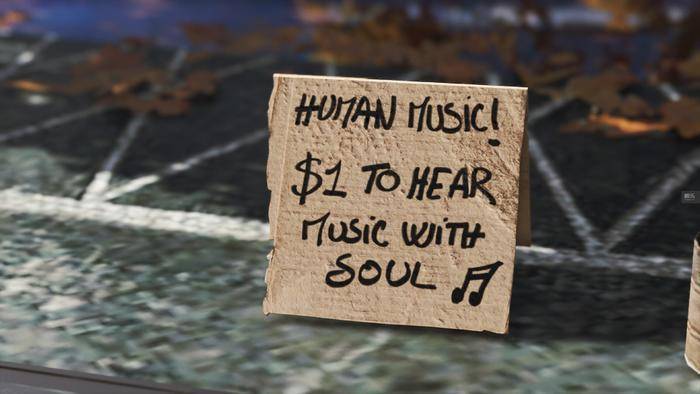 HUMAN MUSIC!
$1 TO HEAR
MUSIC WITH
SOUL